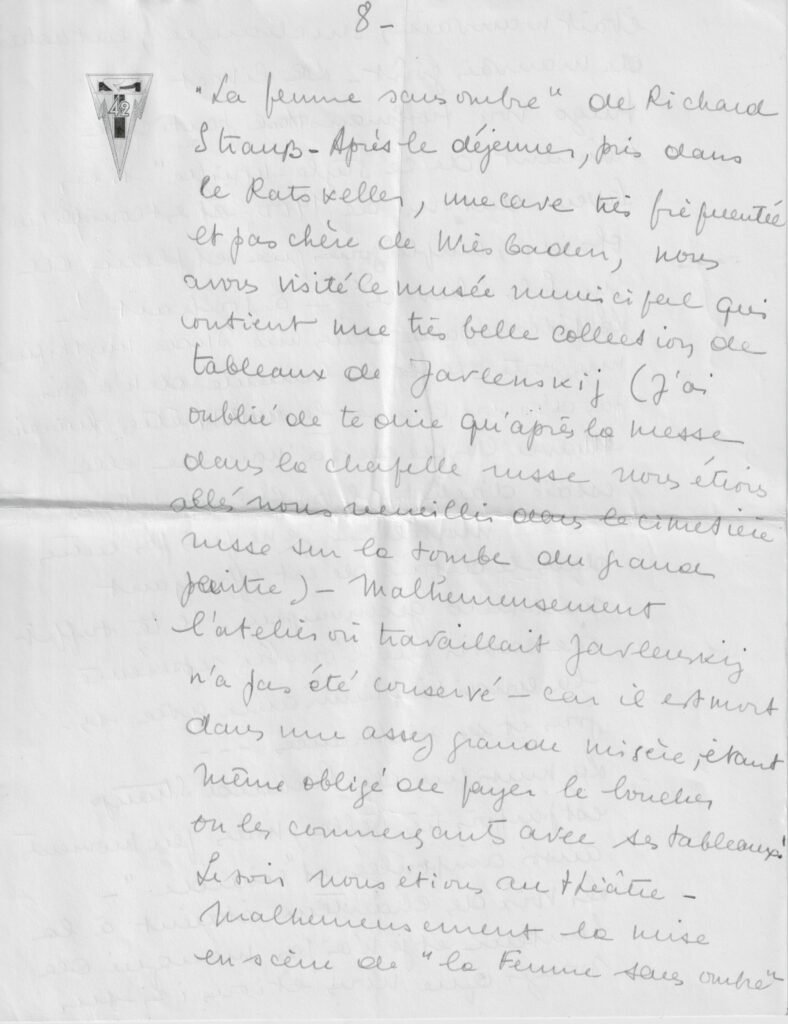 8-
T
42
"La femme sans ombre" de Richard
Strauß - Après le déjeuner, pris dans
le Ratskeller, une cave très fréquentée
et pas chère de Wiesbaden, nous
avons visité le musée municipal qui
contient une très belle collection de
tableaux de Javlenskij (J'ai
oublié de te dire qu'après la messe
dans la chapelle russe nous étions
allés nous recueillir dans le cimetière
russe sur la tombe du grand
peintre) - Malheureusement
l'atelier où travaillait Javlenskij
n'a pas été conservé - car il est mort
dans une assez grande misère, étant
même obligé de payer le boucher
ou les commerçants avec ses tableaux!
Le soir nous étions au théâtre -
Malheureusement la mise
en scène de "la Femme sans ombre"